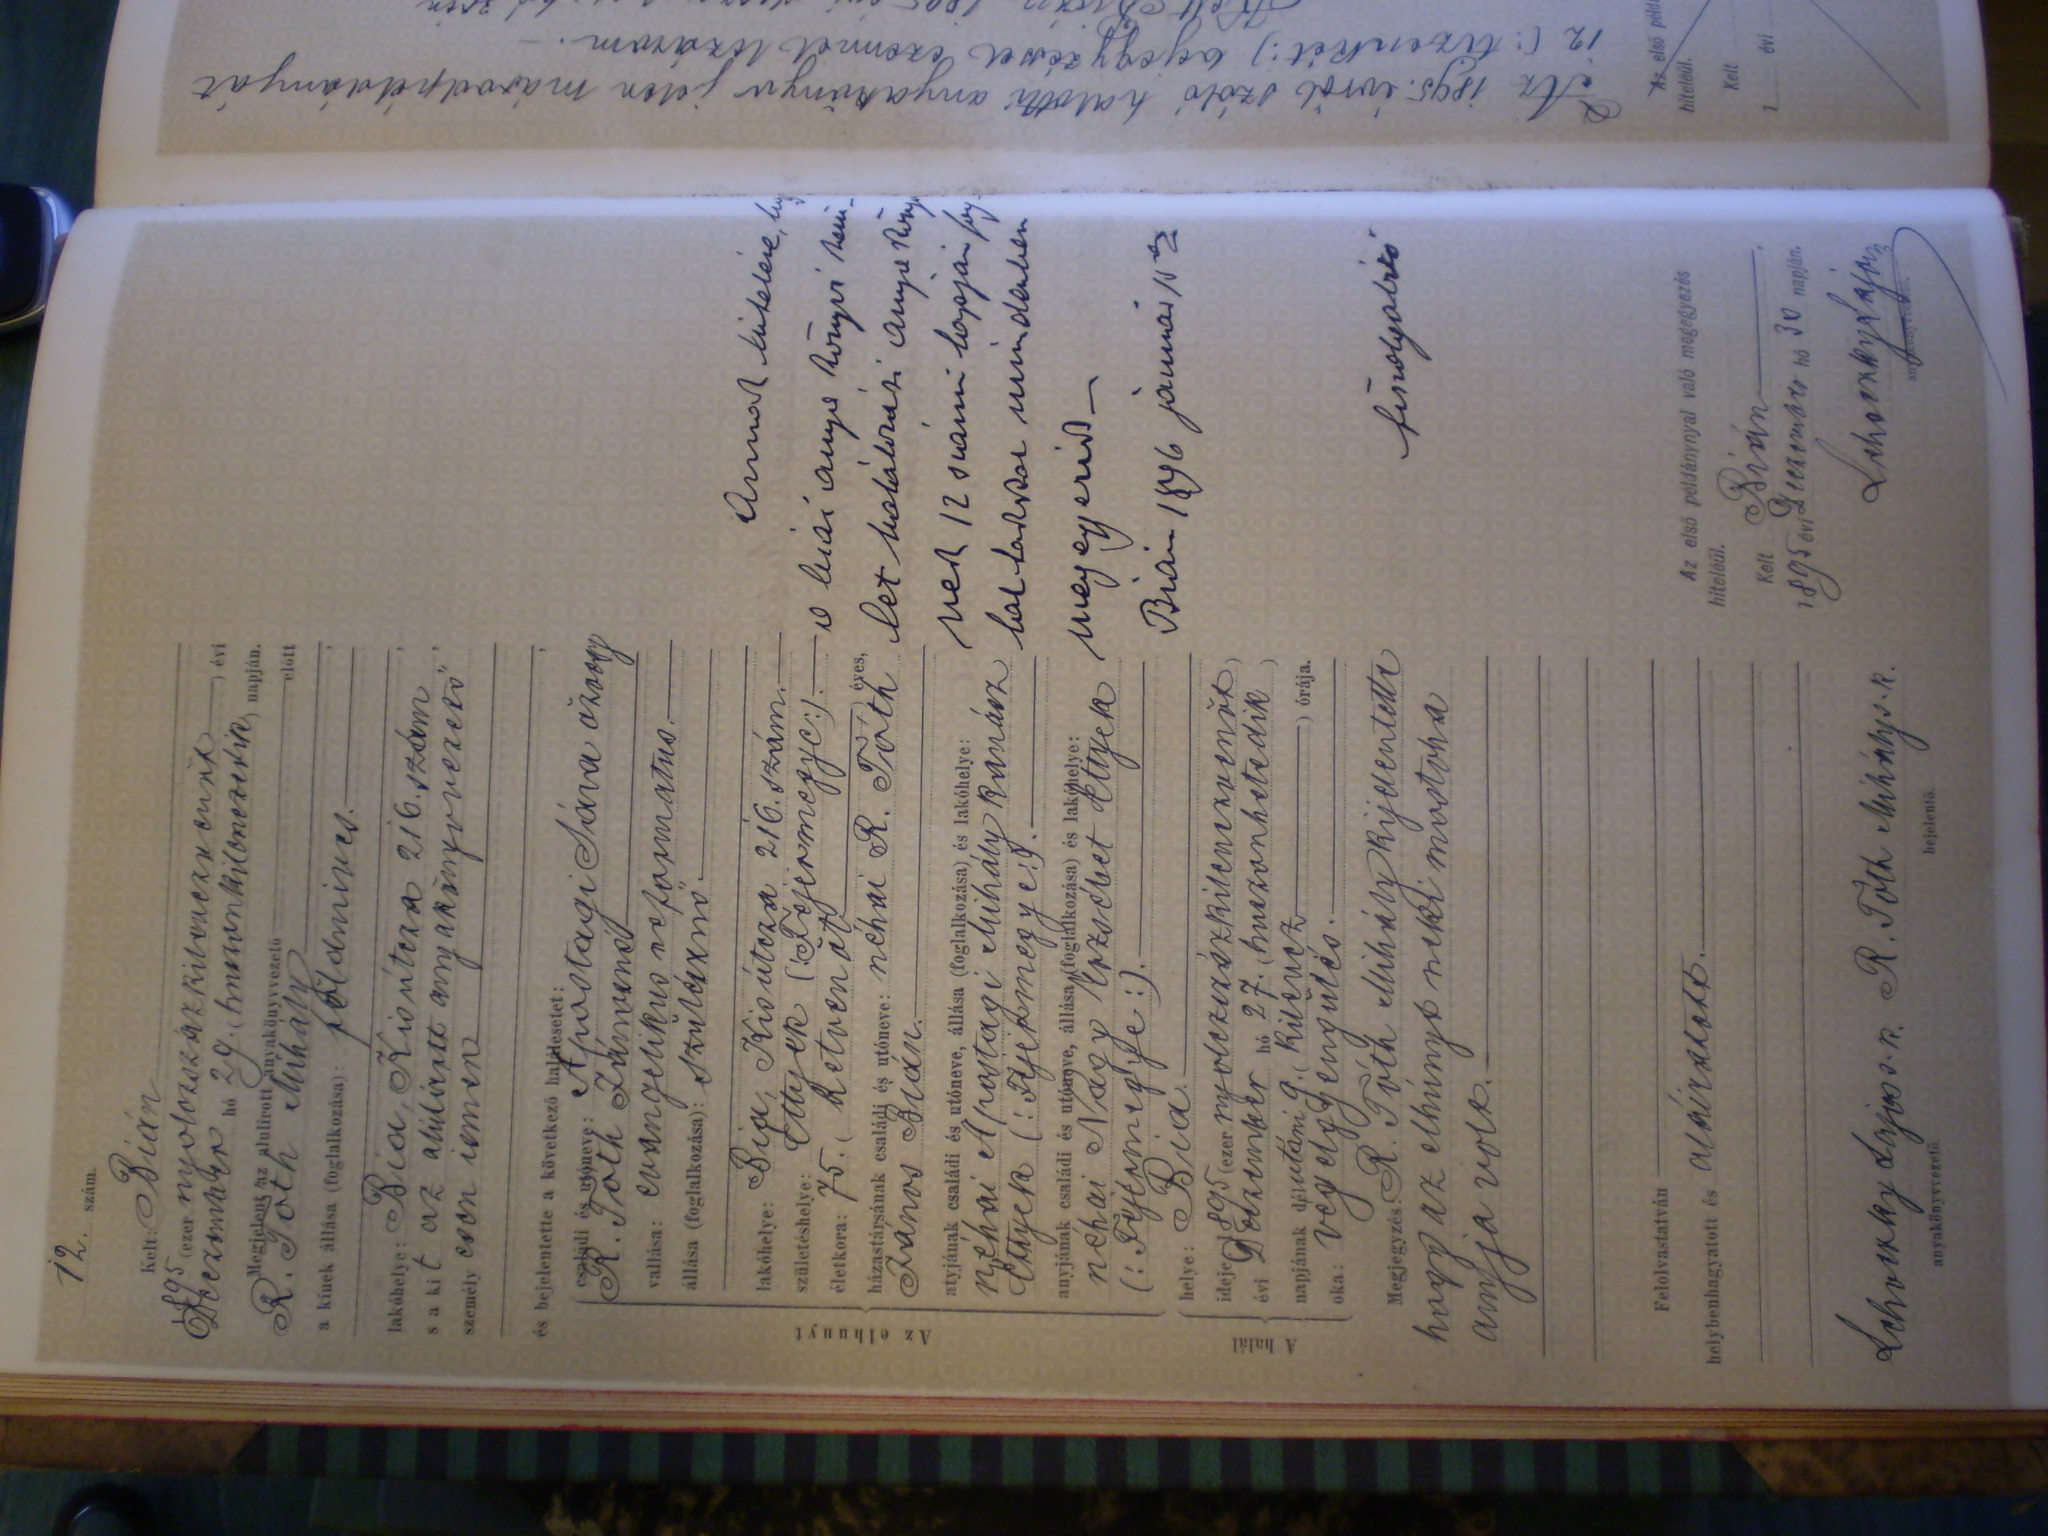 12. szám.
Kelt: Bián
1895 (ezer nyolczszázkilenczvenöt) évi
Deczember hó 29. (huszonkilenczedik) napján.
Megjelent az alulirott anyakönyvvezető előtt
R. Tóth Mihály
a kinek állása (foglalkozása): földmives.
lakóhelye: Bia, Kisútcza 216. szám,
s a kit az alulirott anyakönyvvezető
személyesen ismer,
és bejelentette a következő halálesetet:
Az elhunyt
családi és utóneve: Apostagi Sára özvegy
R. Tóth Jánosné
vallása: evangelikus reformatus.
állása (foglalkozása): szülésznő.
lakóhelye: Bia, Kisútcza 216. szám.
születéshelye: Ettyek (: Fejérmegye:).
életkora: 75. (hetvenöt) éves,
házastársának családi és utóneve: néhai R. Tóth
János Bián.
atyjának családi és utóneve, állása (foglalkozása) és lakóhelye:
néhai Apostagi Mihály kanász
Ettyek (: Fejérmegye:).
anyjának családi és utóneve, állása (foglalkozása) és lakóhelye:
néhai Nagy Erzsébet Ettyek
(: Fejérmegye:).
A halál
helye: Bia.
ideje: 1895 (ezer nyolczszázkilenczvenöt)
évi Deczember hó 27. (huszonhetedik)
napjának délutáni 9. (kilencz) órája.
oka: végelgyengülés.
Megjegyzés: R. Tóth Mihály kijelentette
hogy az elhúnyt neki mostoha
annyja volt.
Felolvastatván
helybenhagyatott és aláíratott.
Lehoczky Lajos s.k. R. Tóth Mihály s.k.
anyakönyvvezető. bejelentő.
Annak hitelére,
a biai anyakönyvi
let határozati anyakönyv
nek 12 számi lapján
laltakkal mindenben
megegyezik
Bián 1896 január 11én
főszolgabíró
Az első példánynyal való megegyezés
hiteléül.
Kelt Bián,
1895 évi Deczember hó 30 napján.
Lehoczky Lajos
anyakönyvvezető.
Az 1895. évről szóló halotti anyakönyv jelen másodpéldányát
12 (: tizenkét:) bejegyzéssel ezennel lezárom.
Az első péld
hiteléül.
Kelt
1 évi